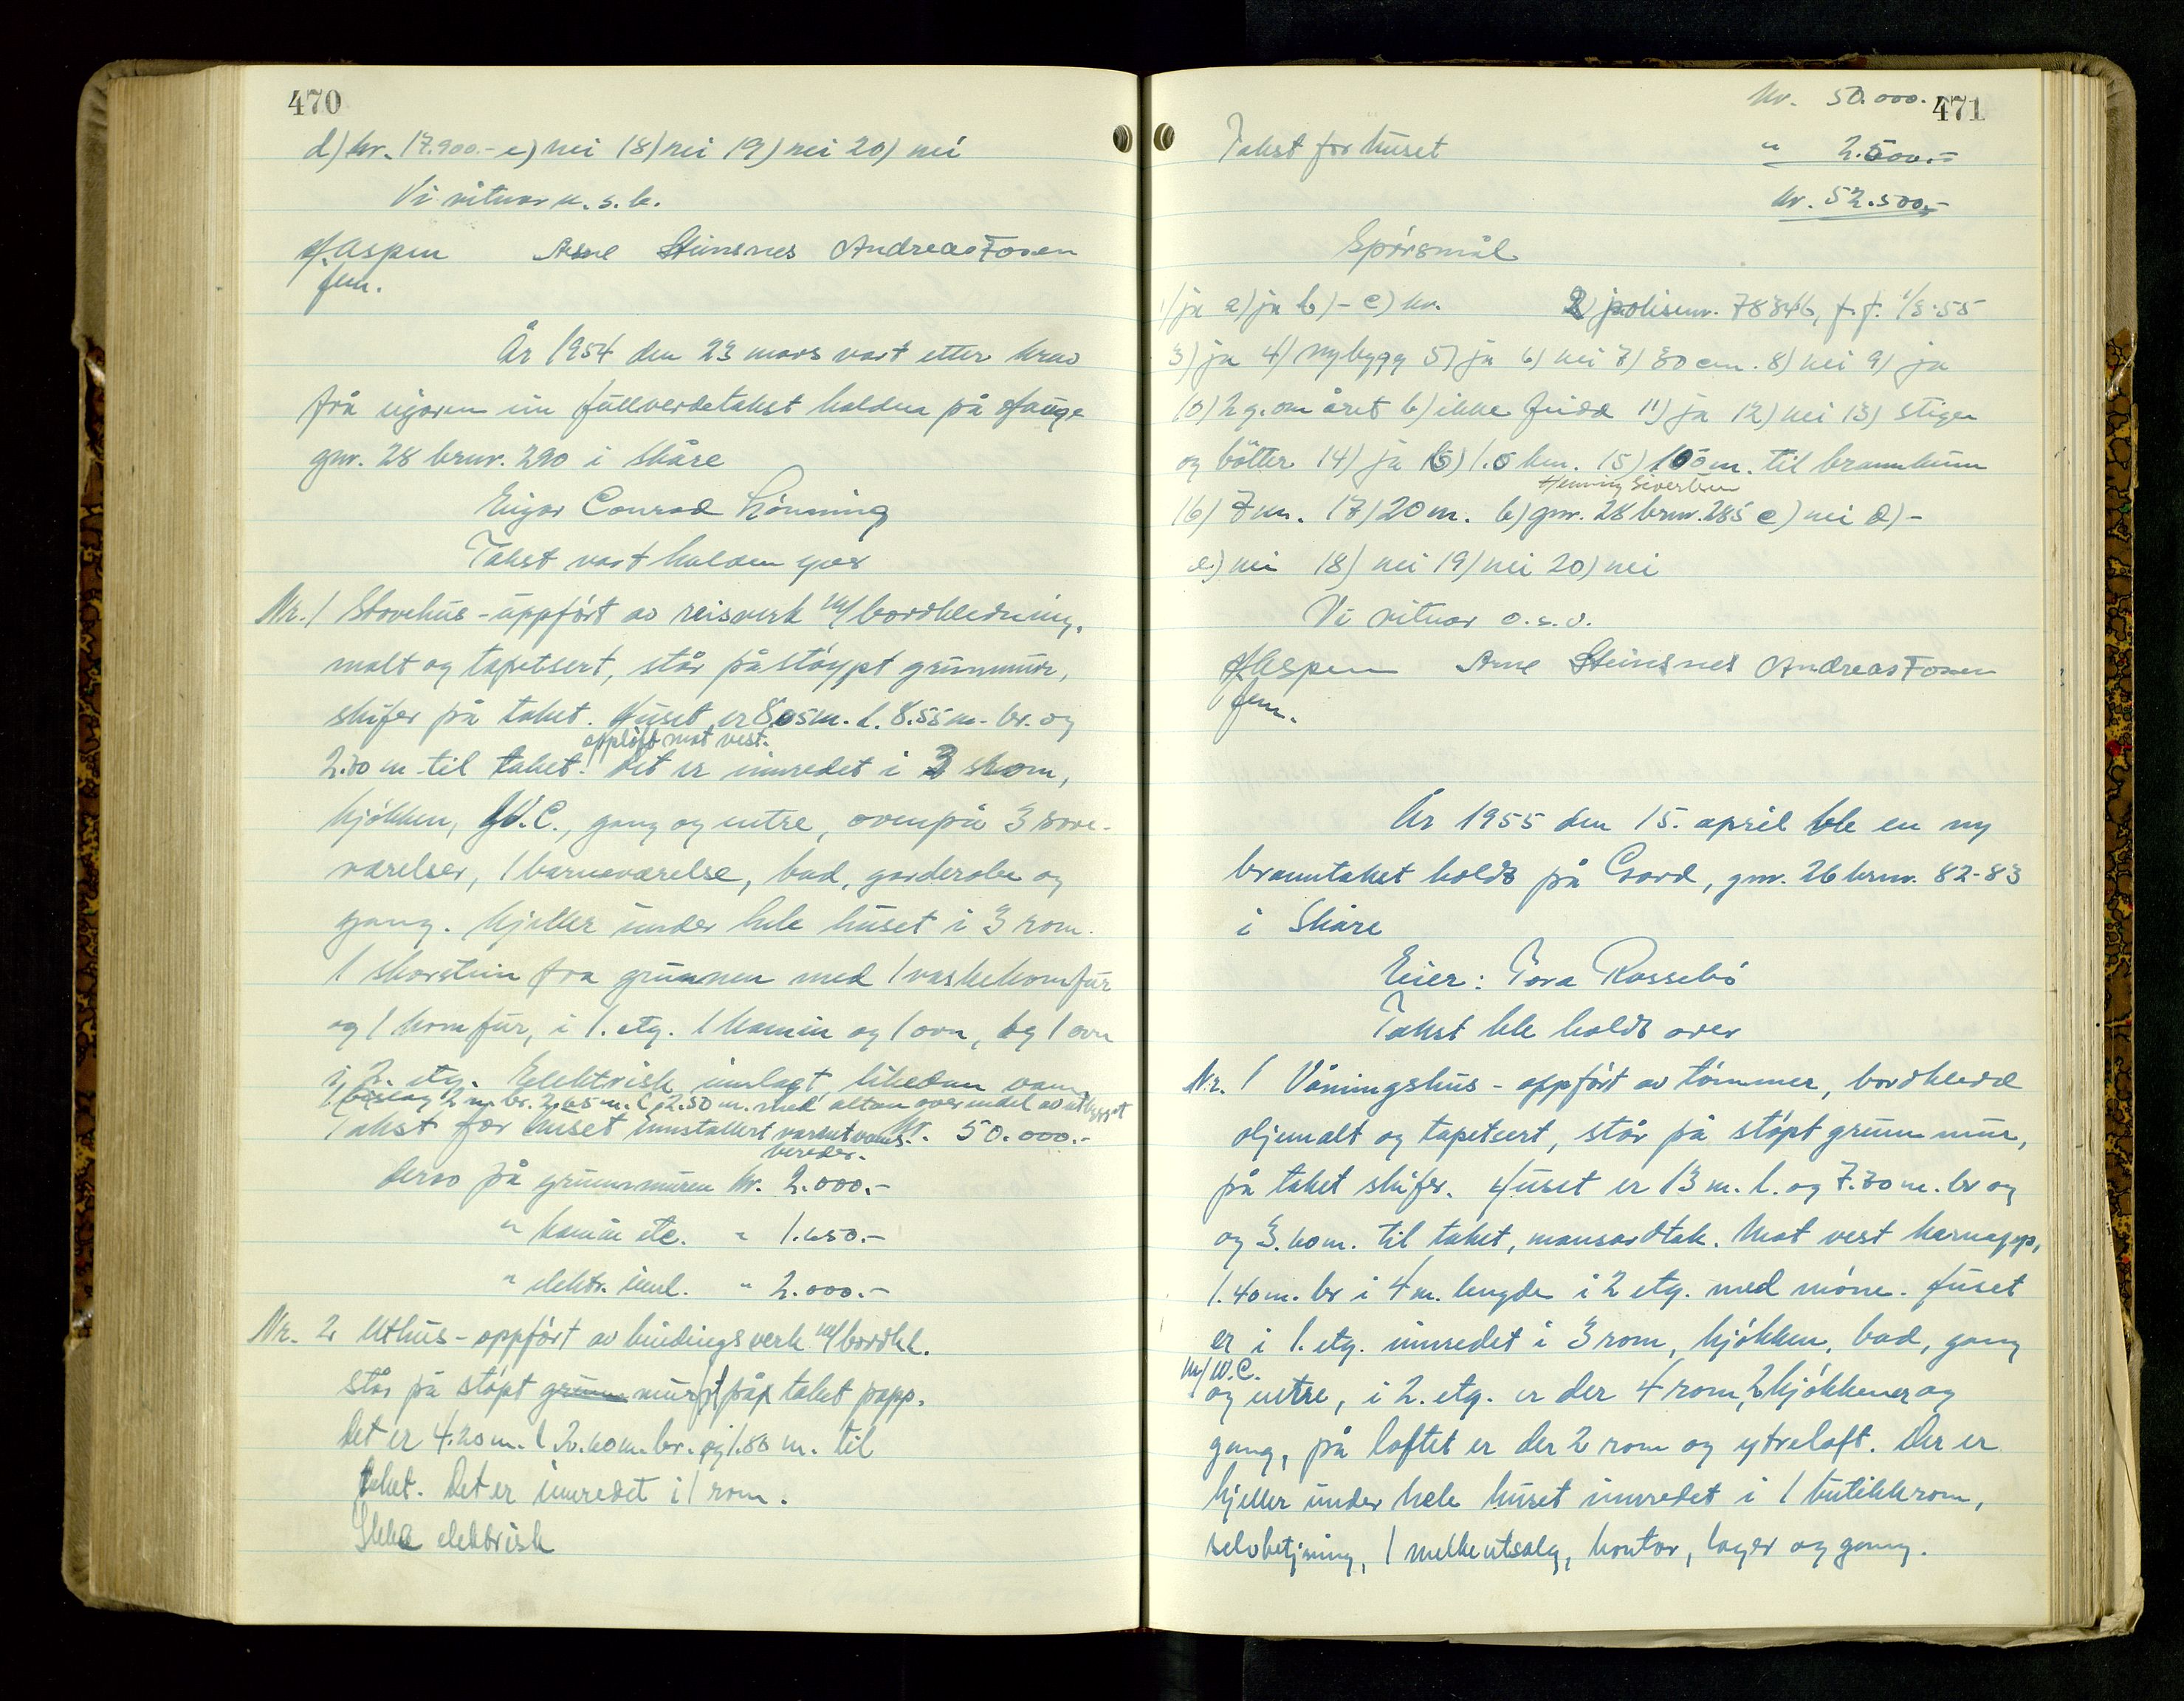 470
d) kr. 17.900.- e) nei 18) nei 19) nei 20) nei
Vi vitnar u. s. b.
H. Aspen Arne Steinsnes Andreas Fosen
fem.
År 1954 den 23 mars vart etter krav
frå eigaren ein fullverdetakst halden på Hauge
gnr. 28 bruv. 290 i Skåre
Eigar Conrad Lönning
Takst vart halden yver
Nr. 1 Stovehus - uppfört av reisverk m/ bordkledning,
malt og tapetsert, står på stöypt grunnmur,
skifer på taket. Huset er 8.05 m. l. 8.55 m. br. og
opplöft mot vest.
2.70 m til taket. Det er innredet i 3 rom,
kjökken, W.C., gang og entre, ovenpå 3 sove-
værelser, 1 barneværelse, bad, garderobe og
gang. Kjeller under hele huset i 3 rom.
1 skorstein fra grunnen med 1 vaskekomfur
og 1 komfur, i 1. etg. 1 kamin og 1 ovn, og 1 ovn
i 2. etg. Elektrisk innlagt likedan vann
2 m. br. 2.65 m. l. 2.50 m. med altan over endel av utbygget
Takst for huset innstallert varmtvanns- kr. 50.000.-
bereder.
Derav på grunnmuren kr. 2.000.-
" kamin etc. " 1.650.-
" elektr. innl. " 2.000.-
Nr. 2 Uthus - oppfört av bindingsverk m/ bordkl.
står på stöpt grunn mur på taket papp.
Det er 4.20 m. l 2.60 m. br. og 1.80 m. til
taket. Det er innredet i 1 rom.
Ikke elektrisk
471
kr. 50.000.-
Takst for huset " 2.500.-
kr. 52.500.-
Spörsmål
1) ja a) ja b) - c) kr. 2) polisenr. 78346, f.f. 1/3-55
3) ja 4) nybygg 5) ja 6) nei 7) 30 cm. 8) nei 9) ja
10) 2 g. om året b) ikke 11) ja 12) nei 13) stiger
og bötter 14) ja 1.5 km. 15) 100 m. til brannkum
Henning Sivertsen
16) 7 m. 17) 20 m. b) gnr. 28 bruv. 285 c) nei d) -
e) nei 18) nei 19) nei 20) nei
Vi vitnar o.s.v.
H. Aspen Arne Steinsnes Andreas Fosen
fem.
År 1955 den 15. april ble en ny
branntakst holdt på Gard, gnr. 26 bruv. 82-83
i Skåre
Eier: Tora Rossebö
Takst ble holdt over
Nr. 1 Våningshus - oppfört av tömmer, bordkledd
oljemalt og tapetsert, står på stöpt grunnmur,
på taket skifer. Huset er 13 m. l. og 7.70 m. br og
og 3.60 m. til taket, mansardtak. Mot vest karnapp,
1.40 m. br i 4 m. lengde i 2 etg. med möne. Huset
er i 1. etg. innredet i 3 rom, kjökken, bad, gang
m/ W.C.
og entre, i 2. etg. er der 4 rom, 2 kjökkener og
gang, på loftet er der 2 rom og ytreloft. Der er
kjeller under hele huset innredet i 1 butikkrom,
selvbetjning, 1 melkeutsalg, kontor, lager og gang.